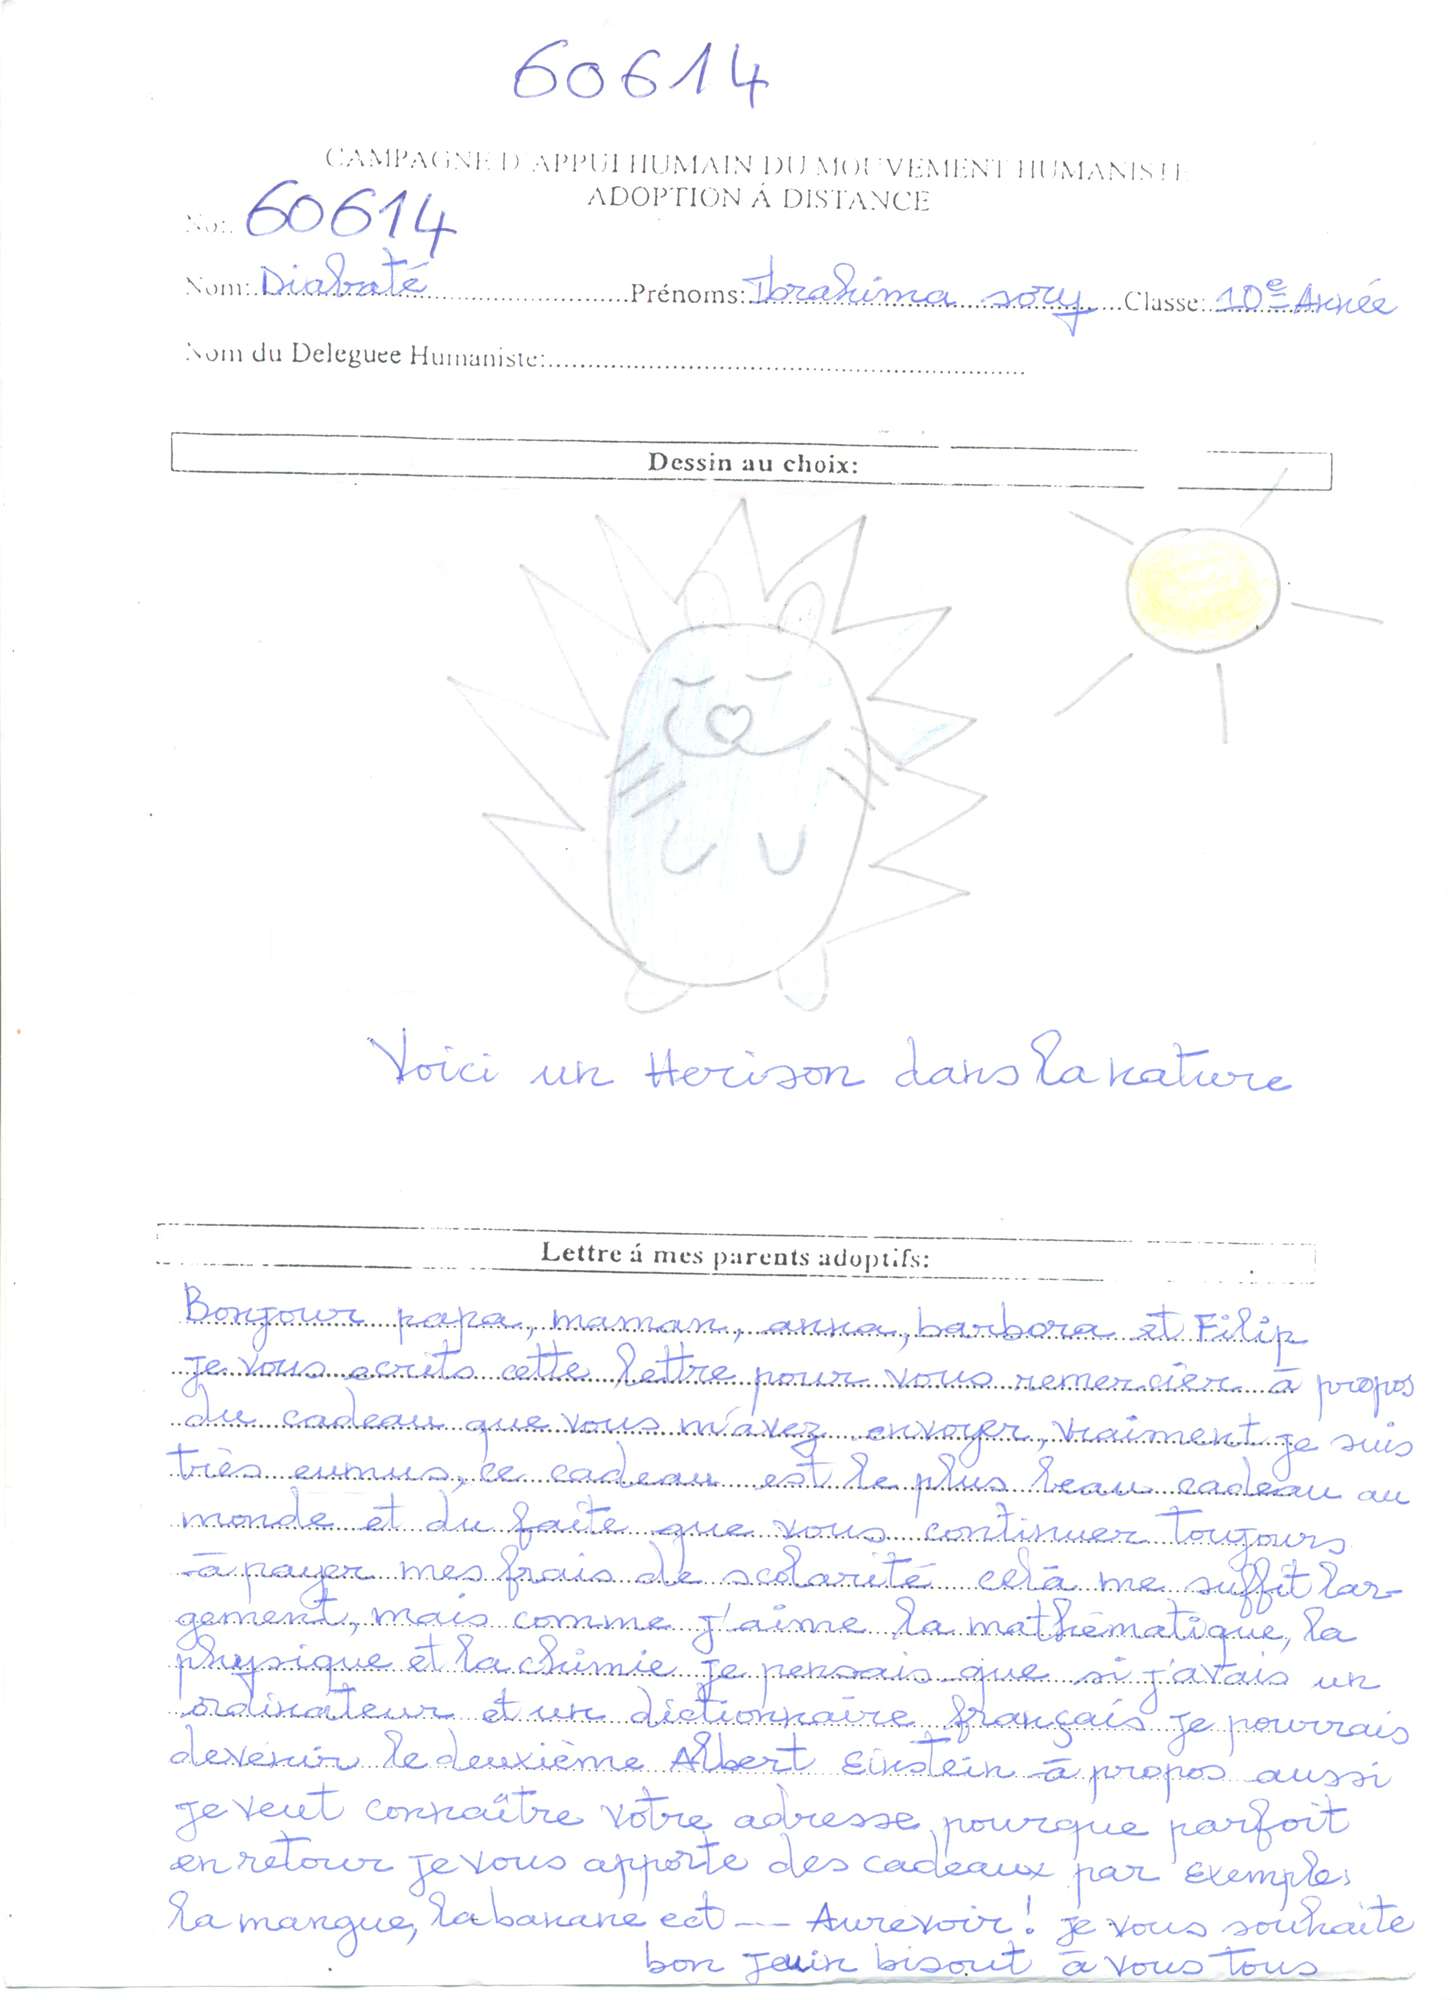 60614
CAMPAGNE D'APPUI HUMAIN DU MOUVEMENT HUMANISTE
ADOPTION Á DISTANCE
No: 60614
Nom: Diabaté Prénoms: Ibrahima sory Classe: 10e Année
Nom du Deleguee Humaniste:
Dessin au choix:
Voici un Herison dans la nature
Lettre á mes parents adoptifs:
Bonjour papa, maman, anna, barbora et Filip
je vous ecrits cette lettre pour vous remercier à propos
du cadeau que vous m'avez envoyer, vraiment je suis
très eumus, ce cadeau est le plus beau cadeau au
monde et du faite que vous continuer toujours
à payer mes frais de scolarité celà me suffit lar-
gement, mais comme j'aime la mathématique, la
physique et la chimie je pensais que si j'avais un
ordinateur et un dictionnaire français je pourrais
devenir le deuxième Albert Einstein à propos aussi
je veut connaître votre adresse pourque parfoit
en retour je vous apporte des cadeaux par exemple:
la mangue, la banane ect --- Aurevoir! je vous souhaite
bon jeuin bisout à vous tous